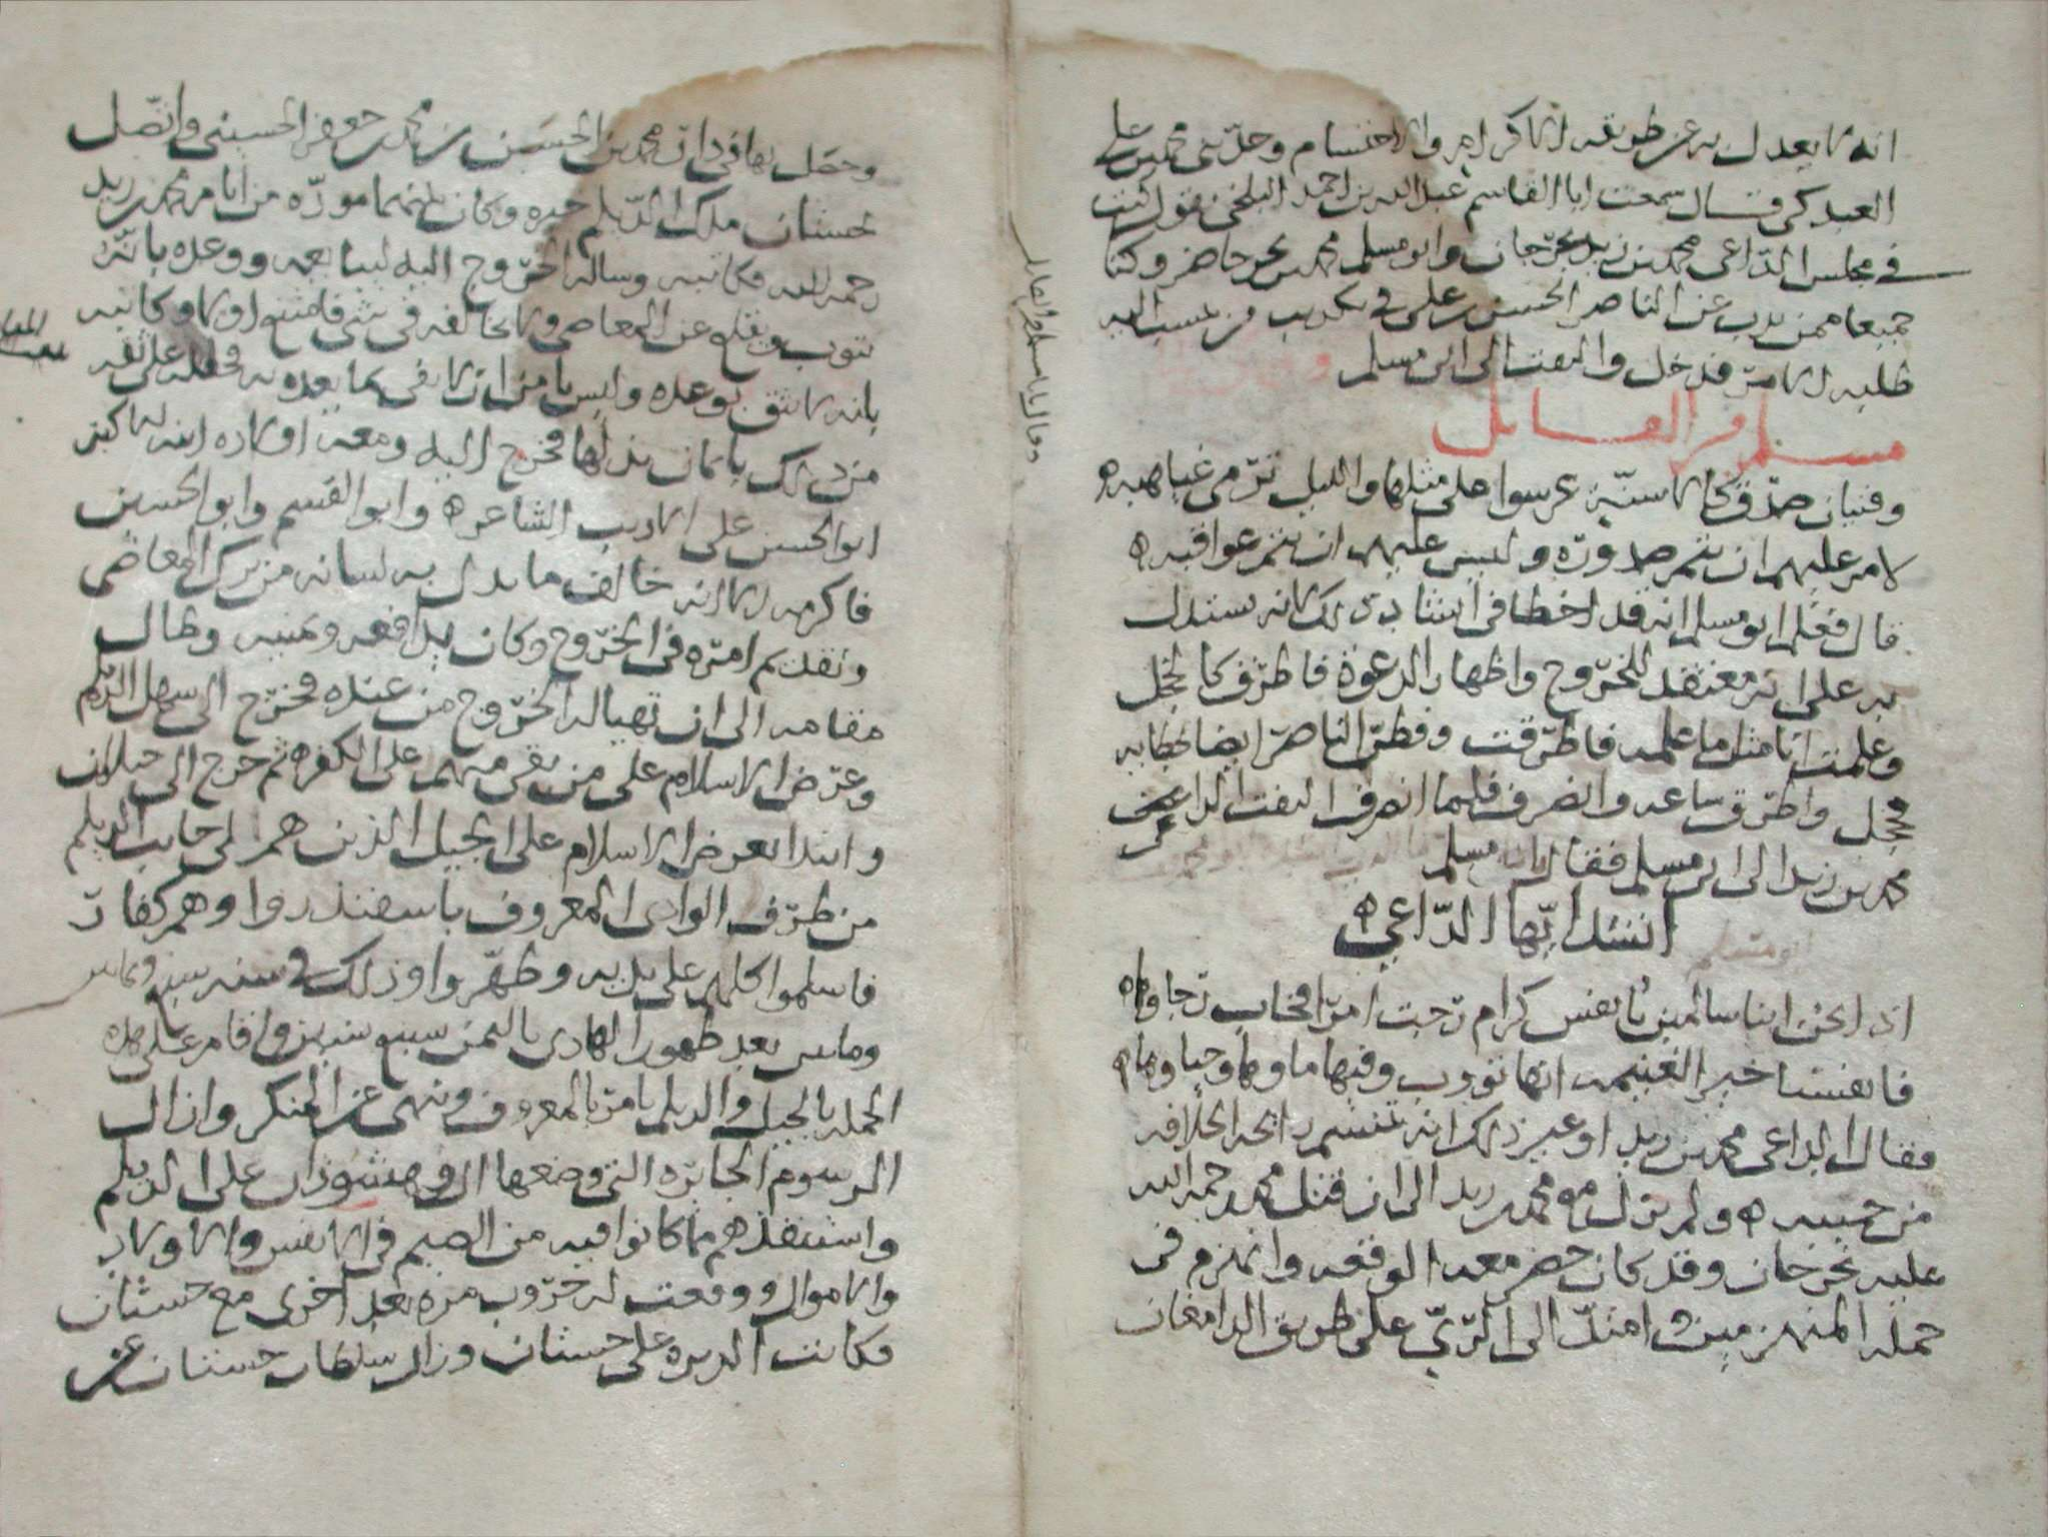 انه لا يعدل به عن طريقه الاكرام والاحتشام وحدثني محمد بن علي
العبدكي قال سمعت ابا القاسم عبدالله بن احمد البلخي يقول كنت
في مجلس الداعي محمد بن زيد بجرجان وابو مسلم محمد بن بحر حاضر وكنا
جميعا ممن يذب عن الناصر الحسن بن علي في تكذيب من نسب اليه
طلبه الامر فدخل والتفت الى ابي مسلم
وقال يا با مسلم من القائل
وفتيان صدق كالاسنة عرسوا على مثلها والليل ترمي غياهبه
لامر عليهم ان يتم صدوره وليس عليهم ان يتم عواقبه
قال فعلم ابو مسلم انه قد اخطا في انشاد ذلك لانه يستدل
به على انه معتقد للخروج واظهار الدعوة فاطرق كالخجل
وعلمت انا مثل ما علمه فاطرقت وفطن الناصر ايضا لخطابه
فخجل واطرق ساعه وانصرف فلما انصرف التفت الداعي
محمد بن زيد الى ابي مسلم فقال يا با مسلم
انشد ايها الداعي
ابو مسلم
اذا نحن ابنا سالمين بانفس كرام رجت امرا فخاب رجاوها
فانفسنا خير الغنيمه انها تووب وفيها ماوها وحياوها
فقال الداعي محمد بن زيد او غير ذلك انه يتنسم رايحه الخلافه
من جبينه ولم يزل مع محمد بن زيد الى ان قتل محمد رحمه الله
عليه بجرجان وقد كان حضر معه الوقعه وانهزم في
جمله المنهزمين وامتد الى الري على طريق الدامغان
وحصل بها في دار محمد بن الحسن بن محمد بن جعفر الحسيني واتصل
بجستان ملك الديلم خبره وكان بينهما موده من ايام محمد بن زيد
رحمه الله فكاتبه وساله الخروج اليه ليبايعه ووعده بانه
يتوب ويقلع عن المعاصي ولا يخالفه في شي فامتنع اولا وكاتبه
بانه لا يثق بوعده وليس يامن ان لا يفي بما يعده به فحلف على ثقه
من ذلك بايمان بذلها فخرج اليه ومعه اولاده ابنه الاكبر
ابو الحسن علي الاديب الشاعر وابو القسم وابو الحسين
فاكرمه الا انه خالف ما بذل به لسانه من ترك المعاصي
وتقديم امره في الخروج وكان يدافعه ويمنيه وطال
مقامه الى ان تهيا له الخروج من عنده فخرج الى سهل الديلم
وعرض الاسلام على من بقي منهم على الكفر ثم خرج الى جيلان
وابتدا بعرض الاسلام على الجيل الذين هم الى جانب الديلم
من طرف الوادي المعروف باسفيذروا وهم كفار
فاسلموا كلهم على يديه وطهروا وذلك في سنه سبع وثمانين
وماتين بعد ظهور الهادي باليمن سبع سنين واقام على هذه
الجمله بالجيل والديلم يامر بالمعروف وينهى عن المنكر وازال
الرسوم الجايره التي وضعها ال وهشوذان على الديلم
واستنقذهم مما كانوا فيه من الضيم في الانفس والاولاد
والاموال ووقعت له حروب مره بعد اخرى مع جستان
فكانت الدبره على جستان وزال سلطان جستان عن